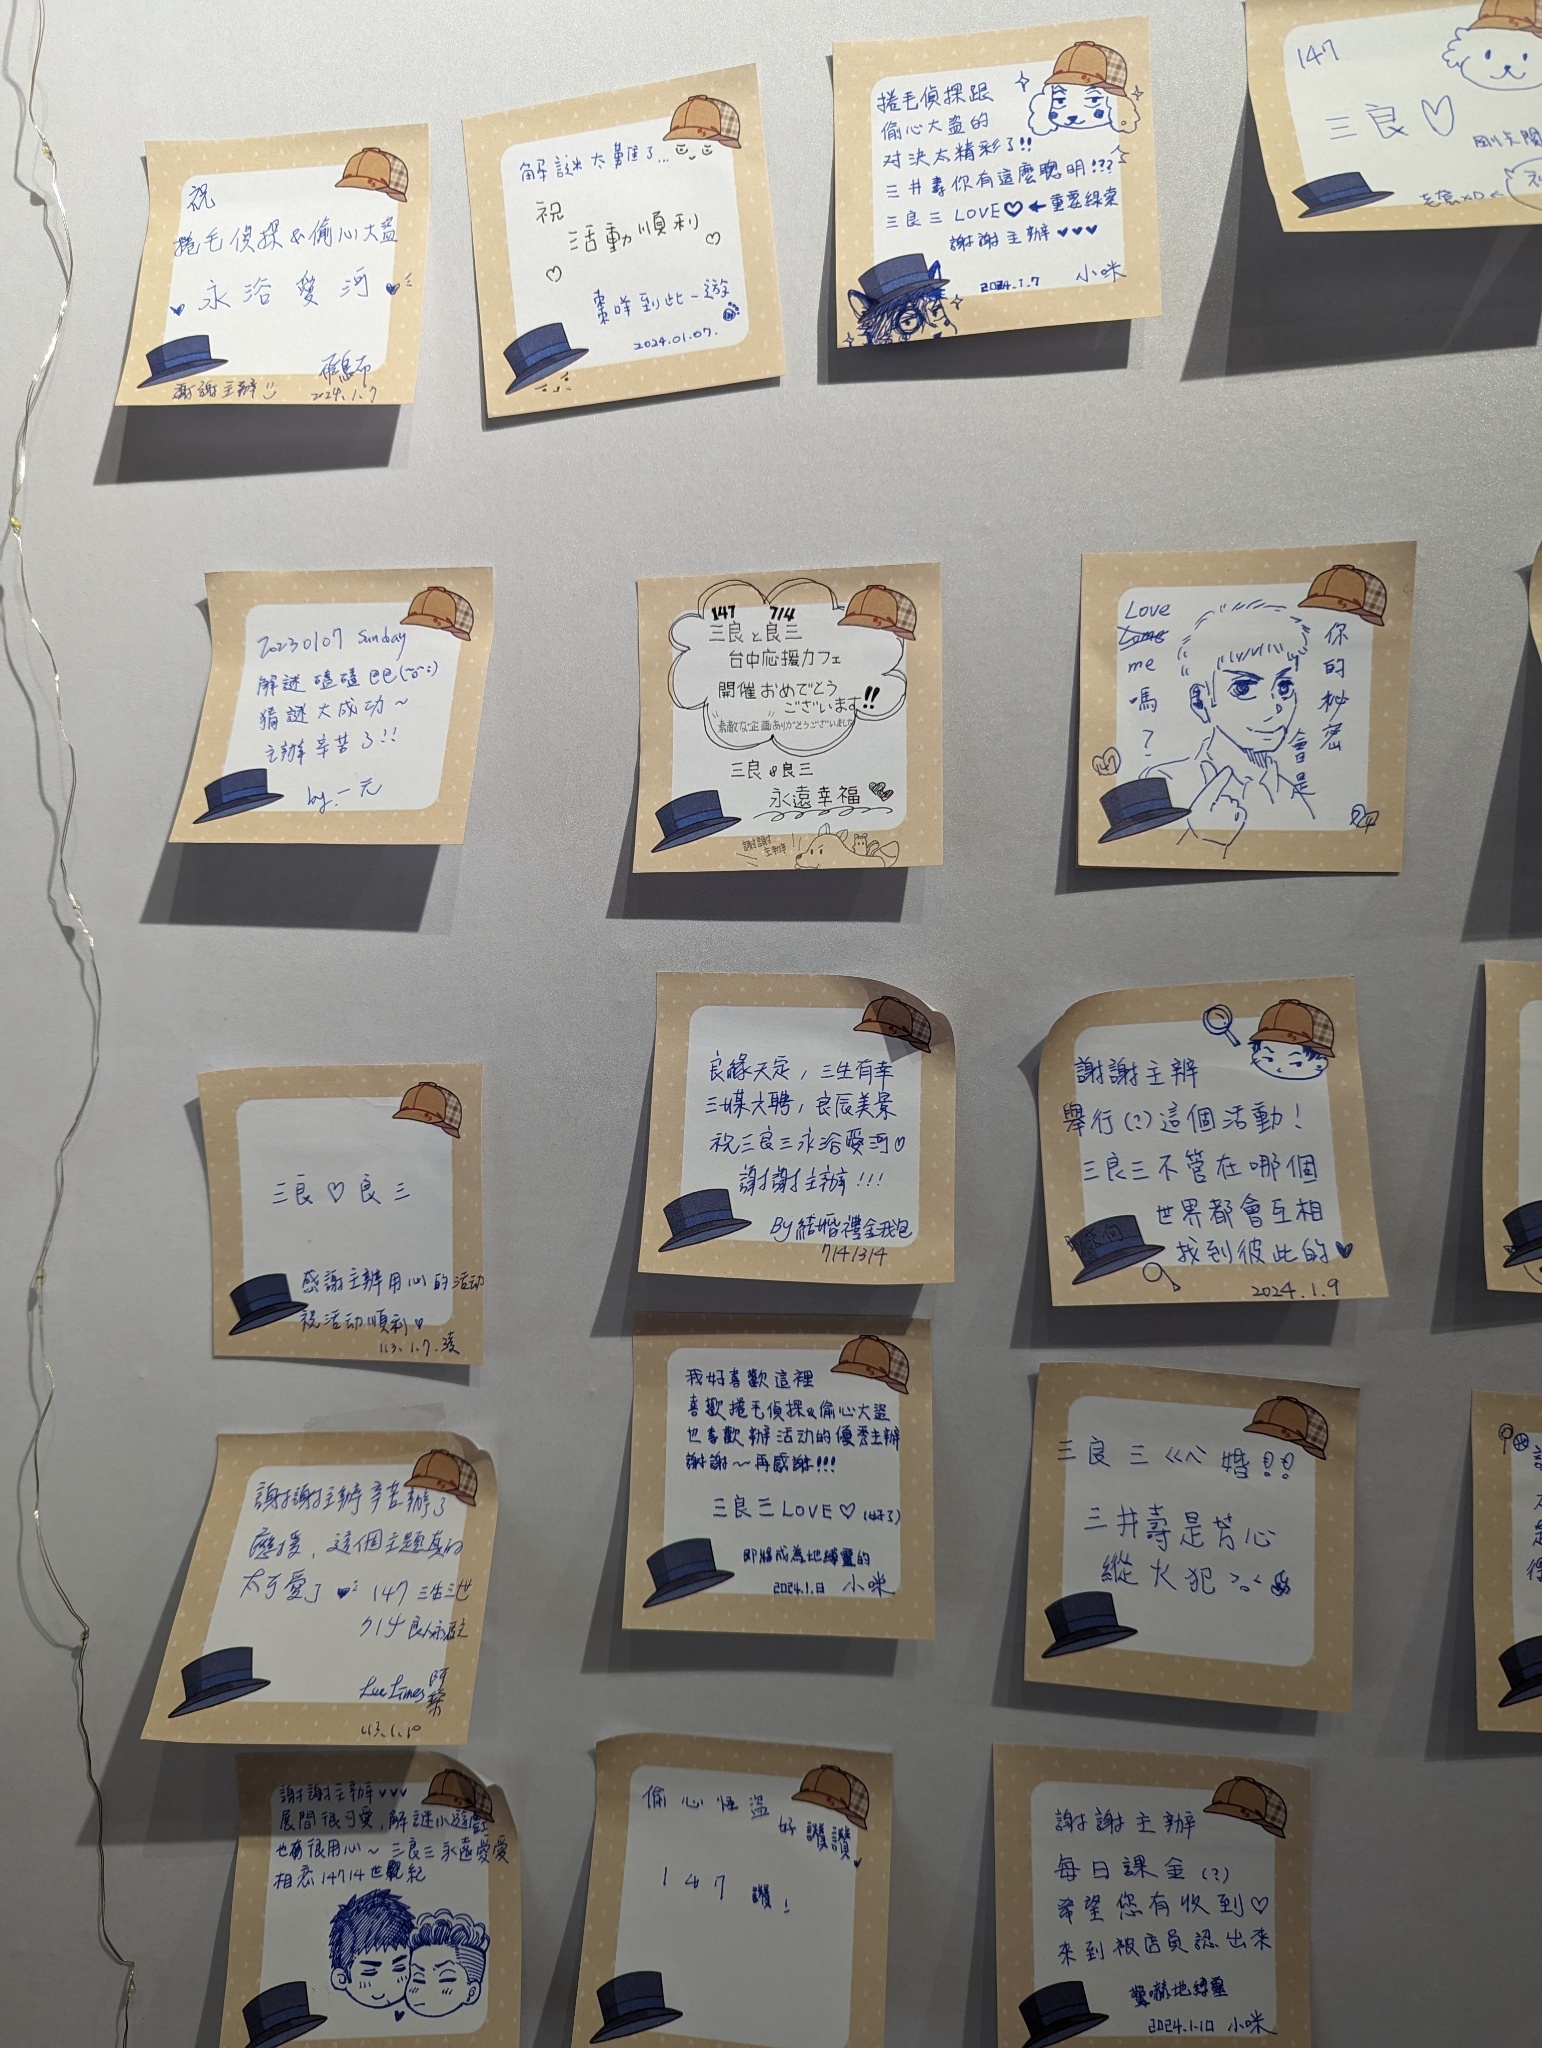 祝
捲毛偵探&偷心大盜
永浴愛河
謝謝主辦
2024.1.7
解謎大
祝
活動順利
到此一遊
2024.01.07.
捲毛偵探跟
偷心大盜的
对決太精彩了!!
三井壽你有這麼聰明!??
三良三 LOVE♡←重要線索
謝謝主辦♥♥♥
2024.1.7 小咪
147
三良♡
20230107 Sunday
解謎磕磕
猜謎大成功~
主辦辛苦了!!
by.一元
147 714
三良と良三
台中応援カフェ
開催おめでとう
ございます!!
素敵な企画ありがとうございました
三良&良三
永遠幸福
謝謝
主辦
你的秘密
會是
Love
me
嗎
?
三良♡良三
感謝主辦用心的活动
祝活动順利♥
113.1.7.
良緣天定，三生有幸
三媒六聘，良辰美景
祝三良三永浴愛河♡
謝謝主辦!!!
By 結婚禮金我包
7141314
謝謝主辦
舉行(?)這個活動!
三良三不管在哪個
世界都會互相
找到彼此的♥
2024.1.9
謝謝主辦辛苦辦了
應援，這個主題真的
太可愛了♥ 147 三生三世
714
113.1.10
我好喜歡這裡
喜歡捲毛偵探&偷心大盜
也喜歡辦活动的優秀主辦
謝謝~再感謝!!!
三良三LOVE♡(好了)
即將成為地縛靈的
2024.1.8 小咪
三良三 ㄍㄟ 婚!!
三井壽是芳心
縱火犯
謝謝主辦
展間很可愛，解謎小遊戲
也有很用心~三良三永遠愛愛
相恋14714世紀
偷心怪盜
好讚讚
147 讚!
謝謝主辦
每日課金(?)
希望您有收到♡
來到被店員認出來
地縛靈
2024.1.10 小咪